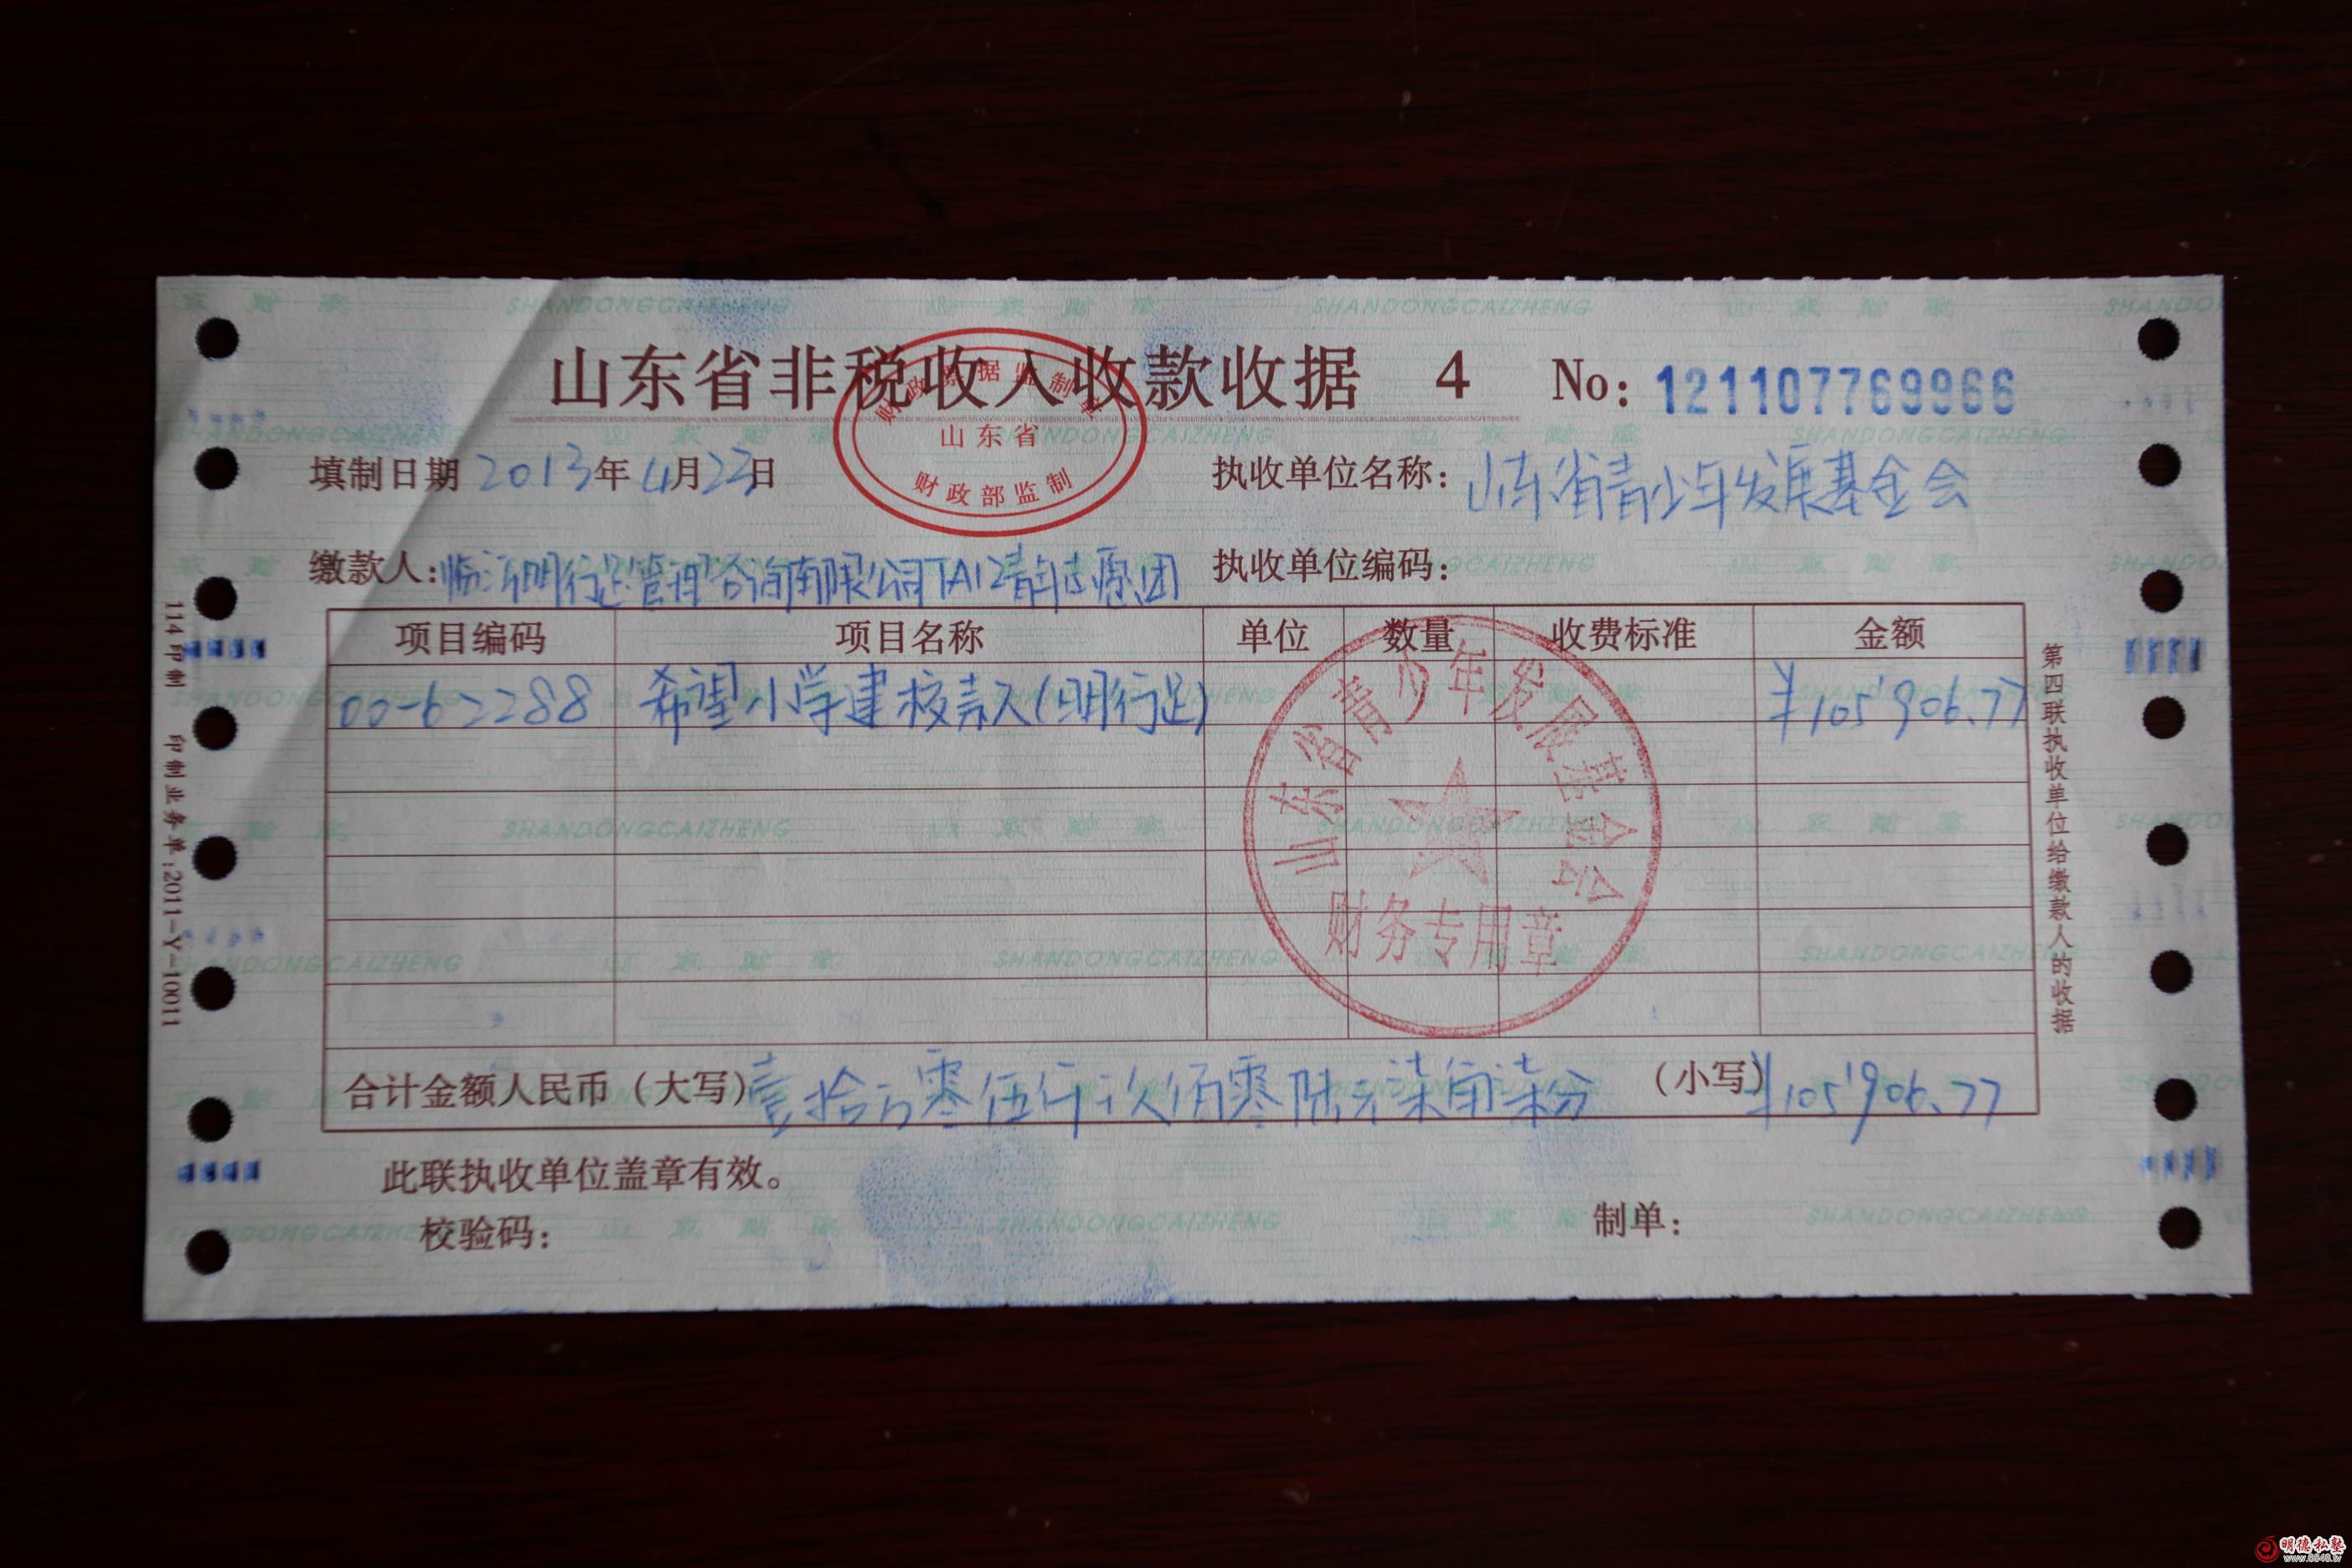 山东省非税收入收款收据 4 No: 121107769966
财政票据监制章
山东省
财政部监制
填制日期 2013年4月23日 执收单位名称: 山东省青少年发展基金会
缴款人: 临沂明行足管理咨询有限公司TA12青年志愿团 执收单位编码:
项目编码 项目名称 单位 数量 收费标准 金额
00-62288 希望小学建校款(明行足) ¥105'906.77
山东省青少年发展基金会
财务专用章
合计金额人民币(大写) 壹拾万零伍仟玖佰零陆元柒角柒分 (小写) ¥105'906.77
此联执收单位盖章有效。
校验码: 制单:
第四联执收单位给缴款人的收据
114印制 印制业务单:2011-Y-10011
明德私塾